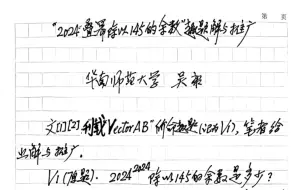 第 页
"2024叠幂除以145的余数"趣题解与推广
华南师范大学 吴康
文[1][2]刊载"VectorAB"所命趣题(记为V1),笔者给
出解与推广.
V1(原题). 2024²⁰²⁴除以145的余数是多少?